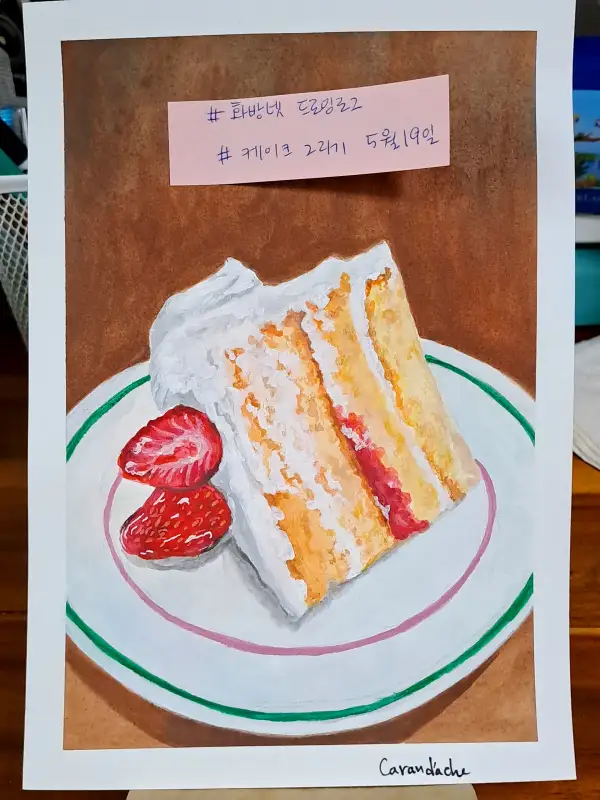 # 화방넷 드로잉크2
# 케이크 그리기 5월19일
Carand'ache